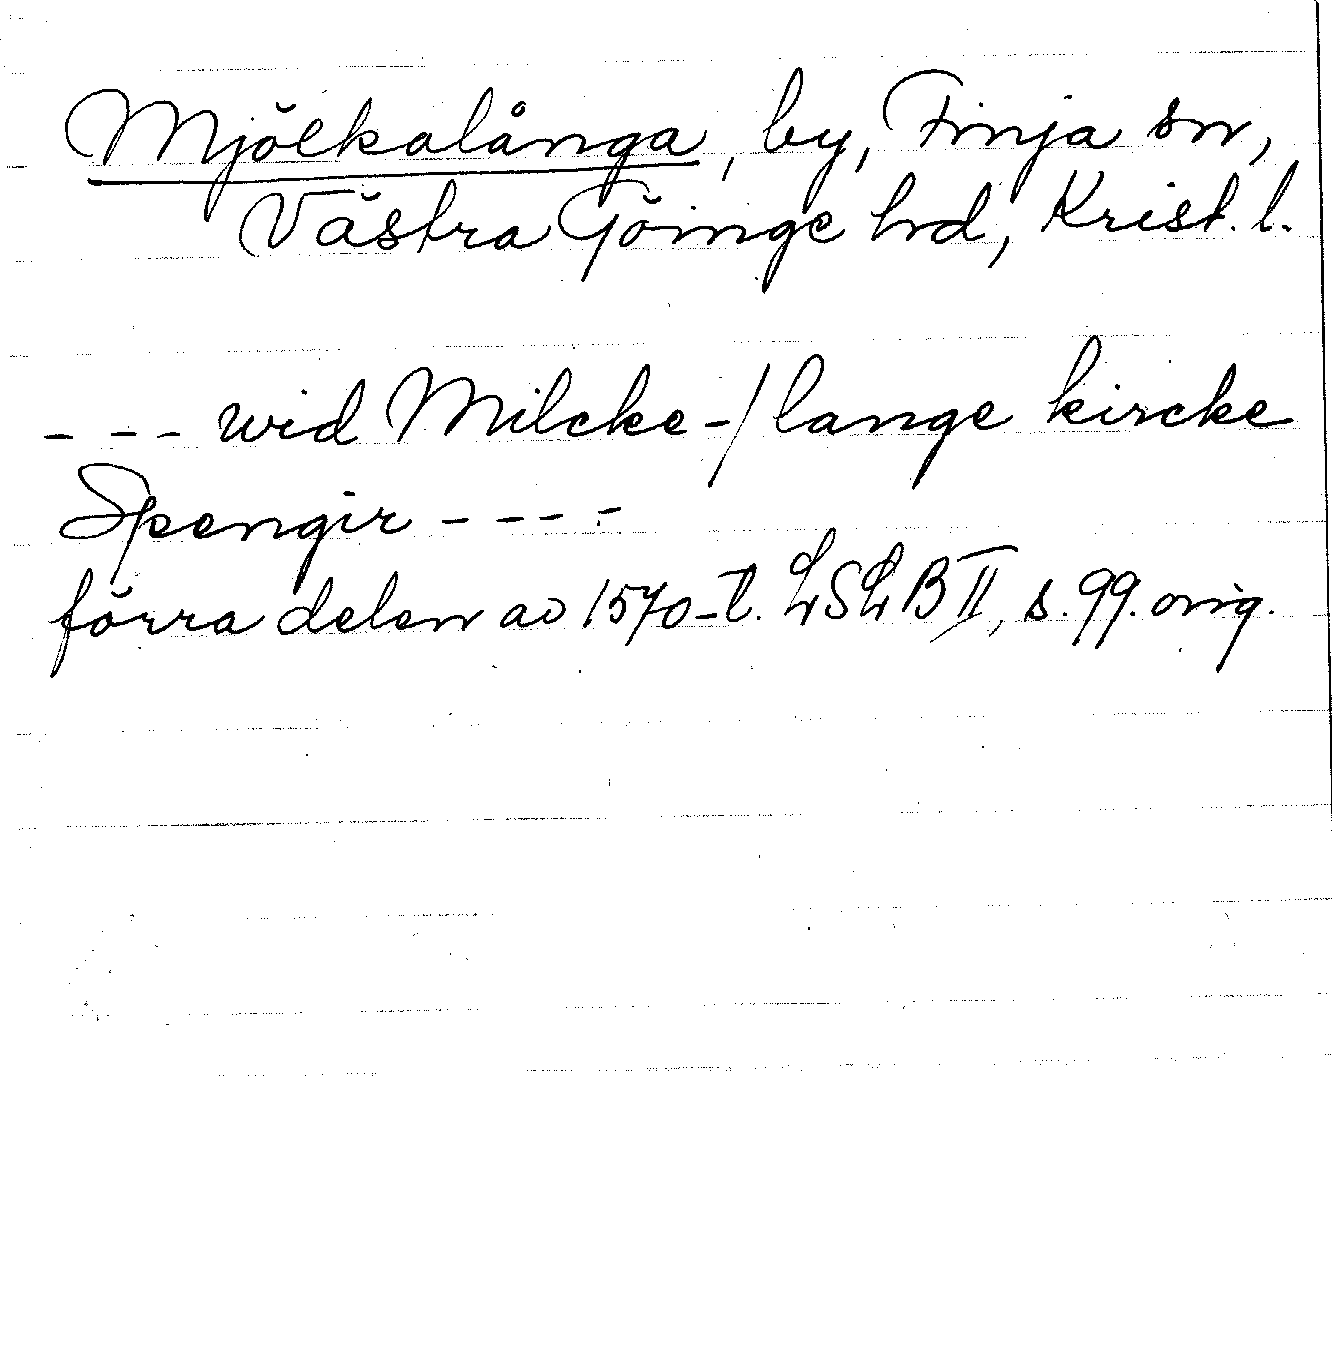 Mjölkalånga, by, Finja sn,
Västra Göinge hd, Krist. l.
- - - wid Milcke-/lange kircke
Spengir - - - -
förra delen av 1570-t. LSLB II, s. 99. orig.